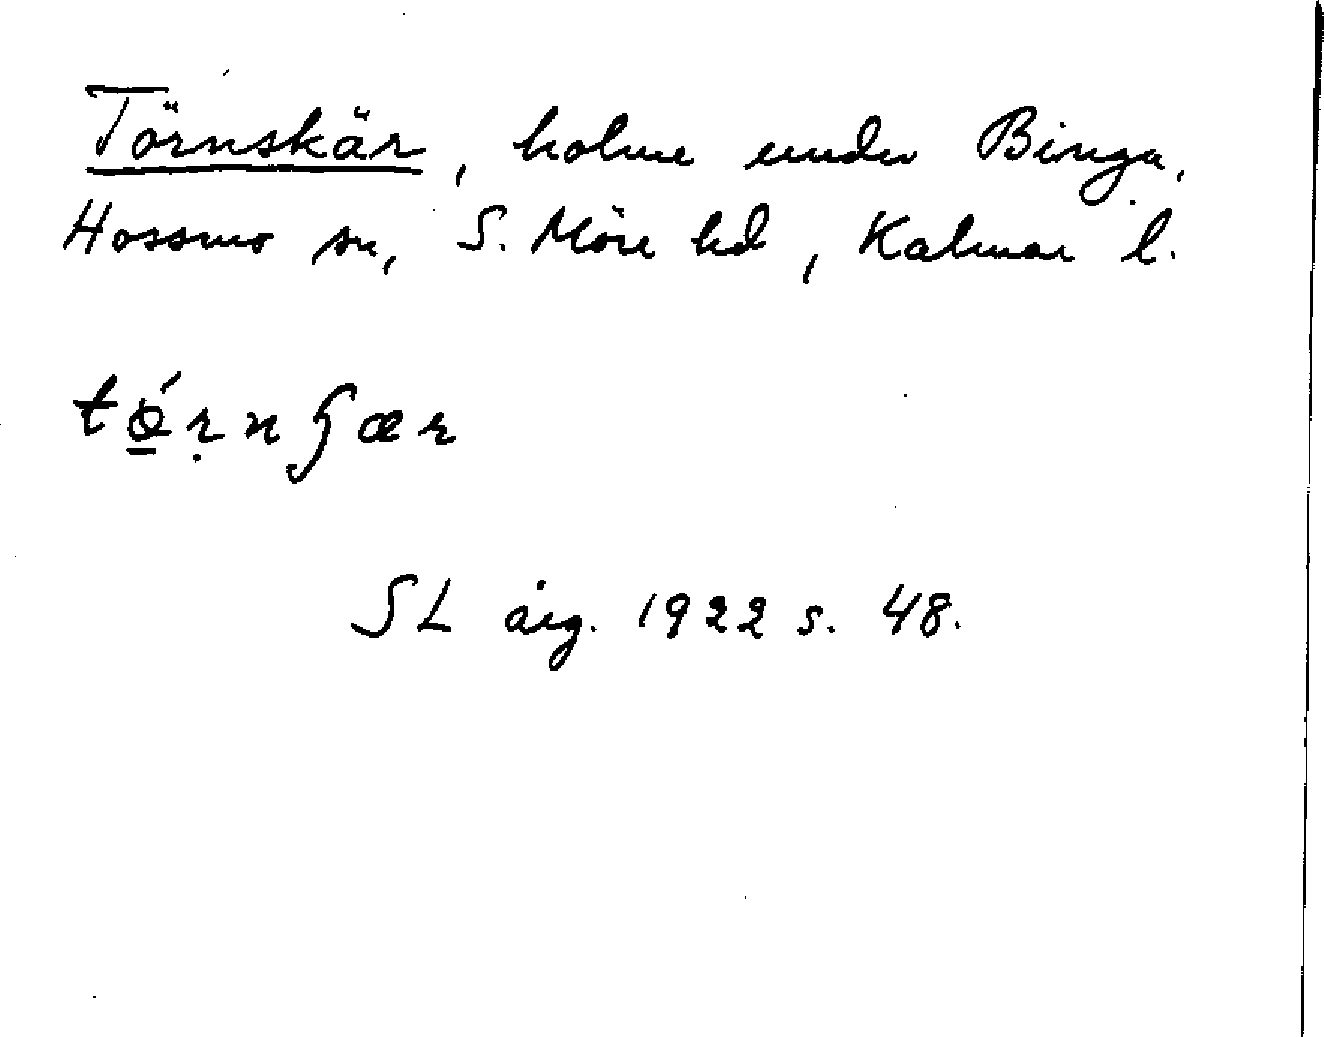 Törnskär, holme under Binga,
Hossmo sn, S. Möre hd, Kalmar l.
tǿ̠ṛnʃær
SL årg. 1922 s. 48.